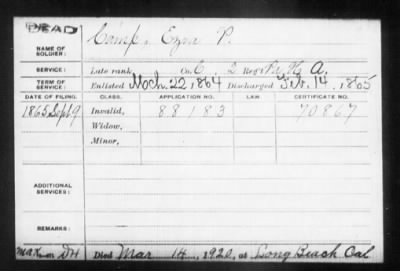 DEAD
NAME OF SOLDIER: Camp, Ezra P.
SERVICE: Late rank Co. C 2 Reg't Pa. H. A.
TERM OF SERVICE: Enlisted Mch. 22, 1864 Discharged Feb. 14, 1865
DATE OF FILING. CLASS. APPLICATION NO. LAW. CERTIFICATE NO.
1865 Sept 9 Invalid, 88183 70867
Widow,
Minor,
ADDITIONAL SERVICES:
REMARKS:
Died Mar 14, 1920, at Long Beach Cal